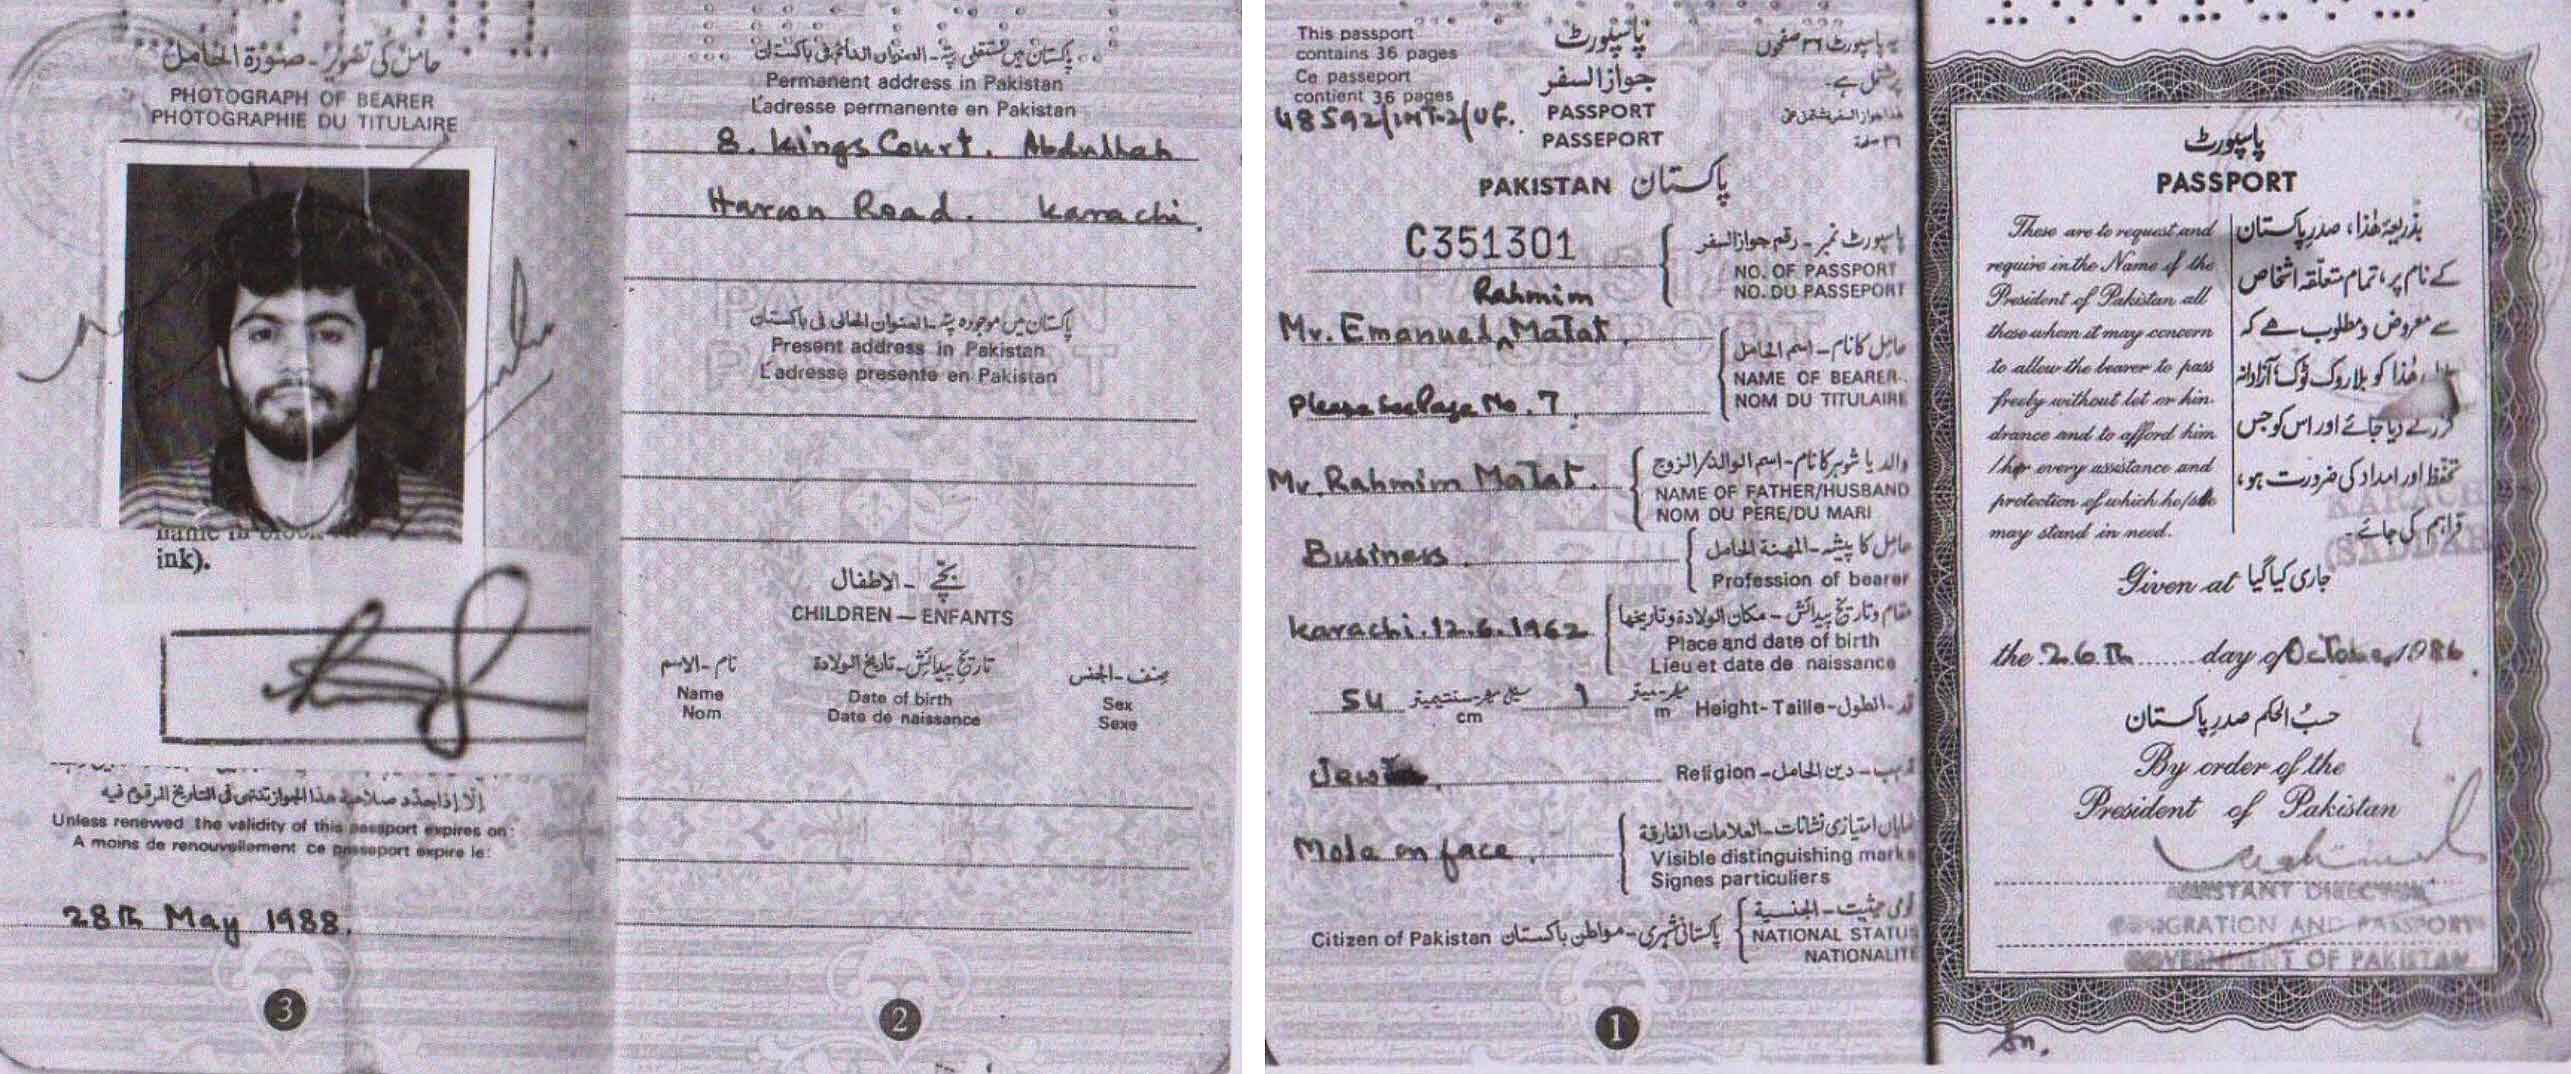 حامل کی تصویر - صورة الحامل
PHOTOGRAPH OF BEARER
PHOTOGRAPHIE DU TITULAIRE
name in block
ink).
إلا إذا جدد صلاحية هذا الجواز تنتهي في التاريخ المرقوم فيه
Unless renewed the validity of this passport expires on:
A moins de renouvellement ce passeport expire le:
28th May 1988.
3
پاکستان میں مستقل پتہ - العنوان الدائم في باكستان
Permanent address in Pakistan
L'adresse permanente en Pakistan
8. Kings Court. Abdullah
Haroon Road. Karachi.
پاکستان میں موجودہ پتہ - العنوان الحالي في باكستان
Present address in Pakistan
L'adresse presente en Pakistan
بچے - الاطفال
CHILDREN — ENFANTS
نام - الاسم
Name
Nom
تاریخ پیدائش - تاريخ الولادة
Date of birth
Date de naissance
صنف - الجنس
Sex
Sexe
2
This passport
contains 36 pages
Ce passeport
contient 36 pages
48592/INT-2/UF.
پاسپورٹ
جواز السفر
PASSPORT
PASSEPORT
یہ پاسپورٹ ۳۶ صفحوں
پر مشتمل ہے -
هذا جواز السفر يشتمل على
٣٦ صفحة
PAKISTAN پاکستان
C351301
پاسپورٹ نمبر - رقم جواز السفر
NO. OF PASSPORT
NO. DU PASSEPORT
Rahmim
Mr. Emanuel Matat.
Please see Page No. 7
حامل کا نام - اسم الحامل
NAME OF BEARER
NOM DU TITULAIRE
Mr. Rahmim Matat.
والد یا شوہر کا نام - اسم الوالد/الزوج
NAME OF FATHER/HUSBAND
NOM DU PERE/DU MARI
Business.
حامل کا پیشہ - المهنة الحامل
Profession of bearer
Karachi. 12.6.1962
مقام و تاریخ پیدائش - مكان الولادة وتاريخها
Place and date of birth
Lieu et date de naissance
54 سینٹی میٹر - سنتيميتر 1 میٹر - ميتر
cm m
Height-Taille - قد - الطول
Jew
Religion - مذہب - دين الحامل
Mole on face.
نمایاں امتیازی نشانات - العلامات الفارقة
Visible distinguishing marks
Signes particuliers
Citizen of Pakistan پاکستانی شہری - مواطن باكستان
قومی حیثیت - الجنسية
NATIONAL STATUS
NATIONALITE
1
پاسپورٹ
PASSPORT
These are to request and
require in the Name of the
President of Pakistan all
those whom it may concern
to allow the bearer to pass
freely without let or hin-
drance and to afford him
/her every assistance and
protection of which he/she
may stand in need.
بذریعہ ھٰذا، صدر پاکستان
کے نام پر، تمام متعلقہ اشخاص
سے معروض و مطلوب ہے کہ
ھٰذا کو بلا روک ٹوک آزادانہ
گزرنے دیا جائے اور اس کو جس
تحفظ اور امداد کی ضرورت ہو،
فراہم کی جائے -
KARACHI
(SADDAR
Given at جاری کیا گیا
the 26th day of October, 1986.
حسب الحکم صدر پاکستان
By order of the
President of Pakistan
ASSISTANT DIRECTOR
IMMIGRATION AND PASSPORT
GOVERNMENT OF PAKISTAN